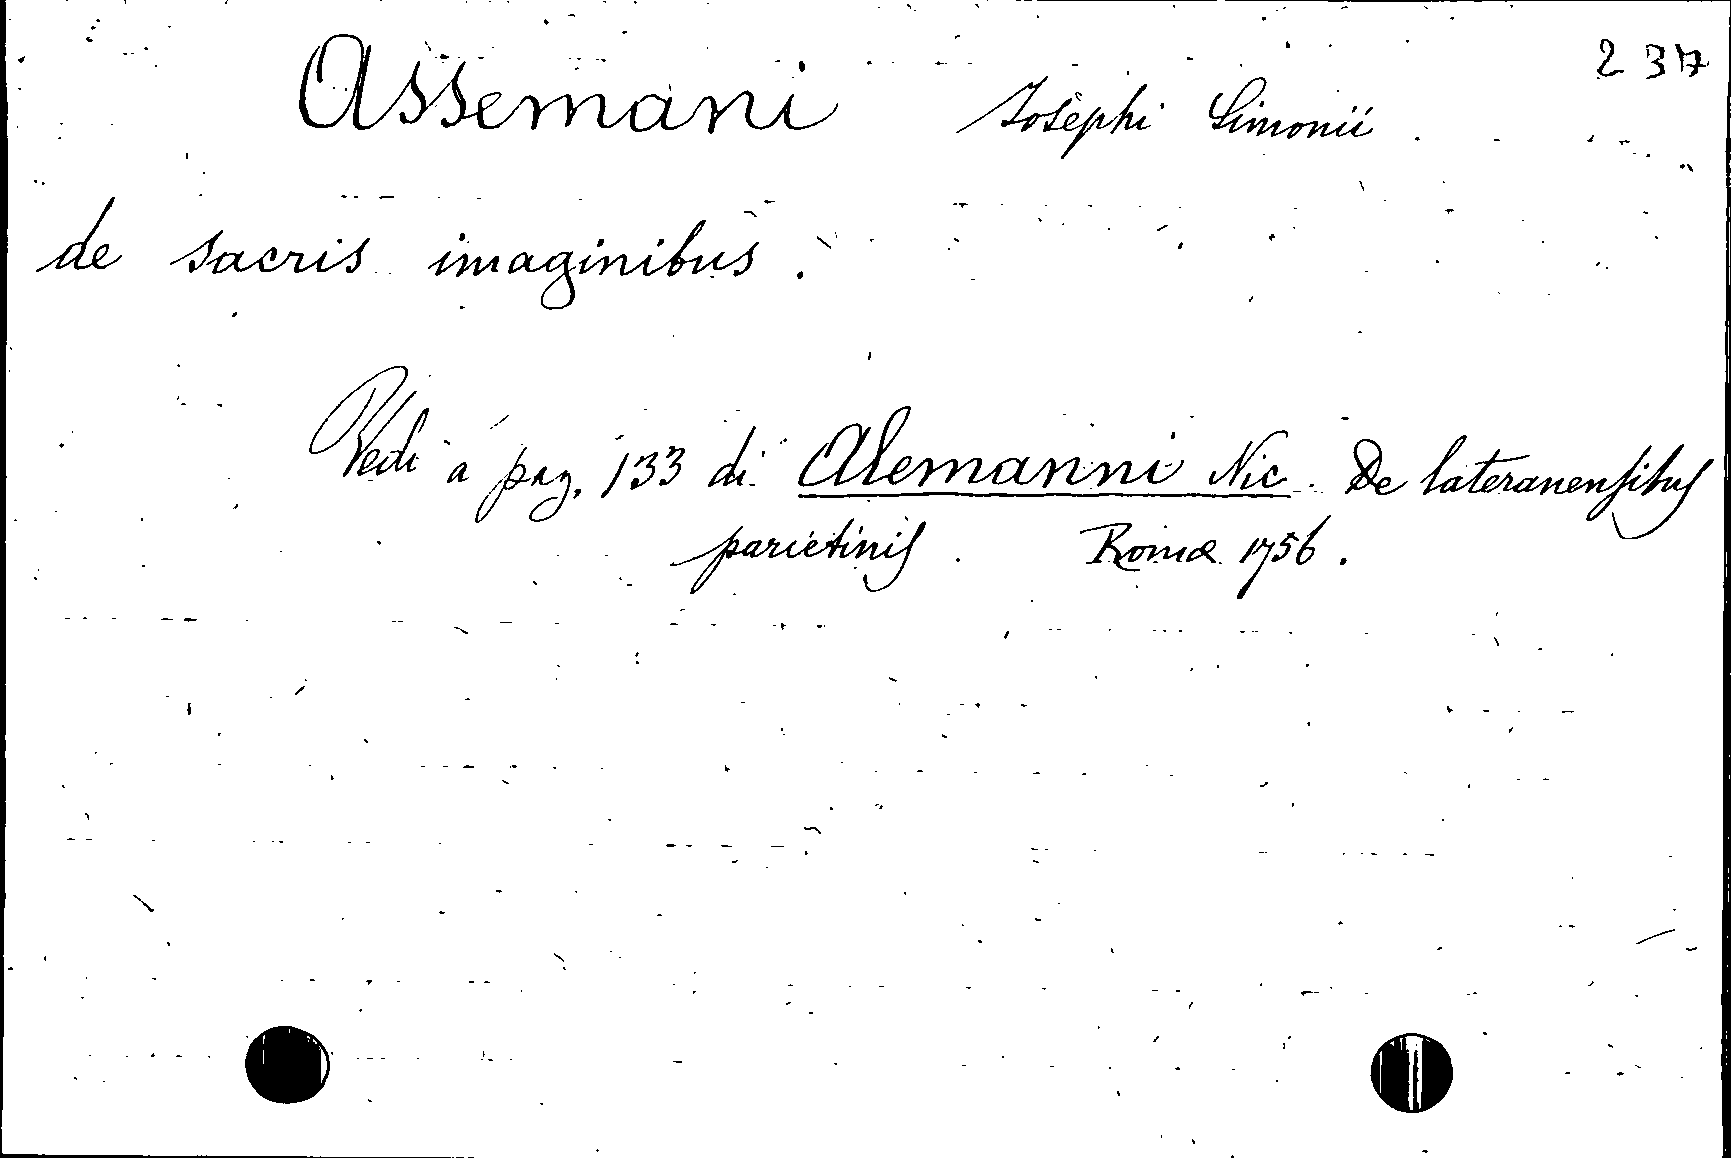 237
Assemani Josephi Simonii
de sacris imaginibus.
Vedi a pag. 133 di Alemanni Nic. De lateranensibus
parietinis. Romæ 1756.